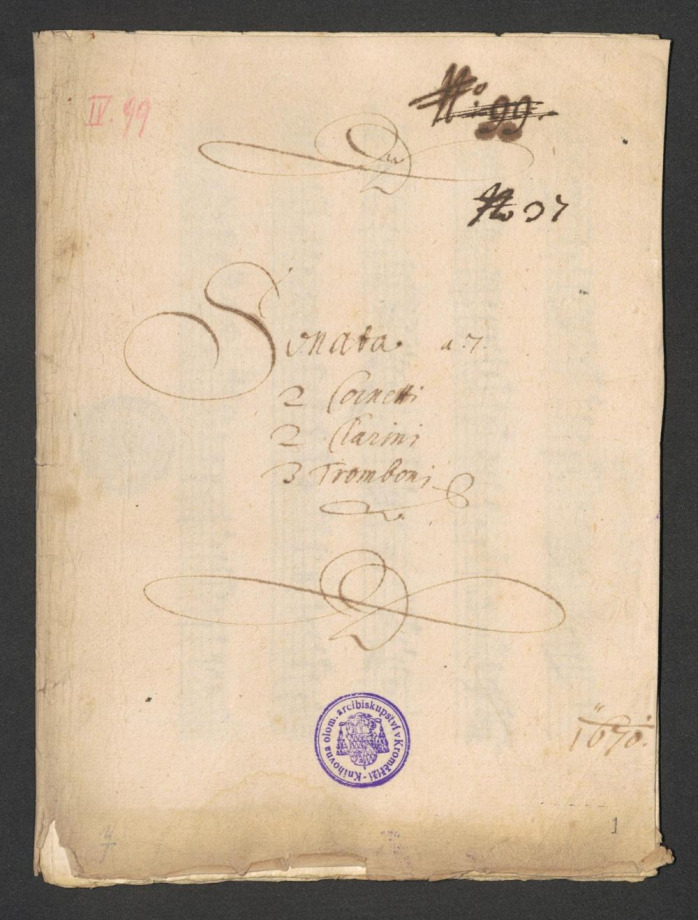 IV. 99
No. 99.
No 37
Sonata. a 7.
2 Cornetti
2 Clarini
3 Tromboni
Knihovna olom. arcibiskupství v Kroměříži
1670.
1